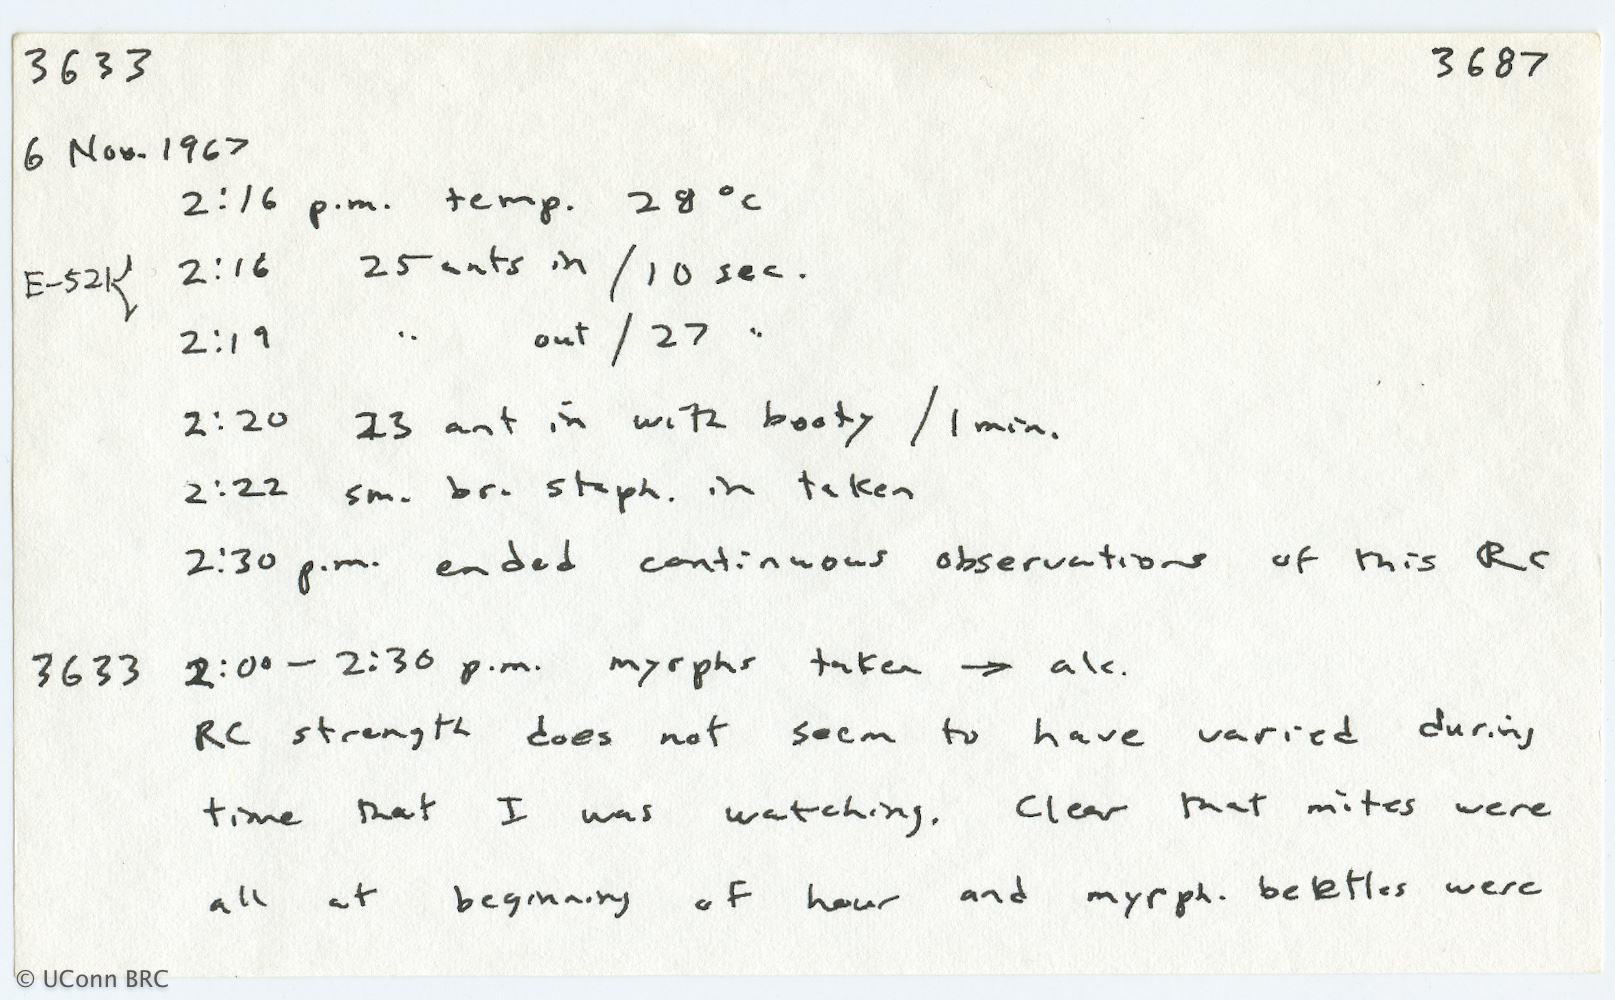 3633 3687
6 Nov. 1967
2:16 p.m. temp. 28 °c
E-521{ 2:16 25 ants in / 10 sec.
2:19 " out / 27 "
2:20 23 ant in with booty / 1 min.
2:22 sm. br. staph. in taken
2:30 p.m. ended continuous observations of this RC
3633 2:00 – 2:30 p.m. myrphs taken → alc.
RC strength does not seem to have varied during
time that I was watching. Clear that mites were
all at beginning of hour and myrph. beetles were
© UConn BRC